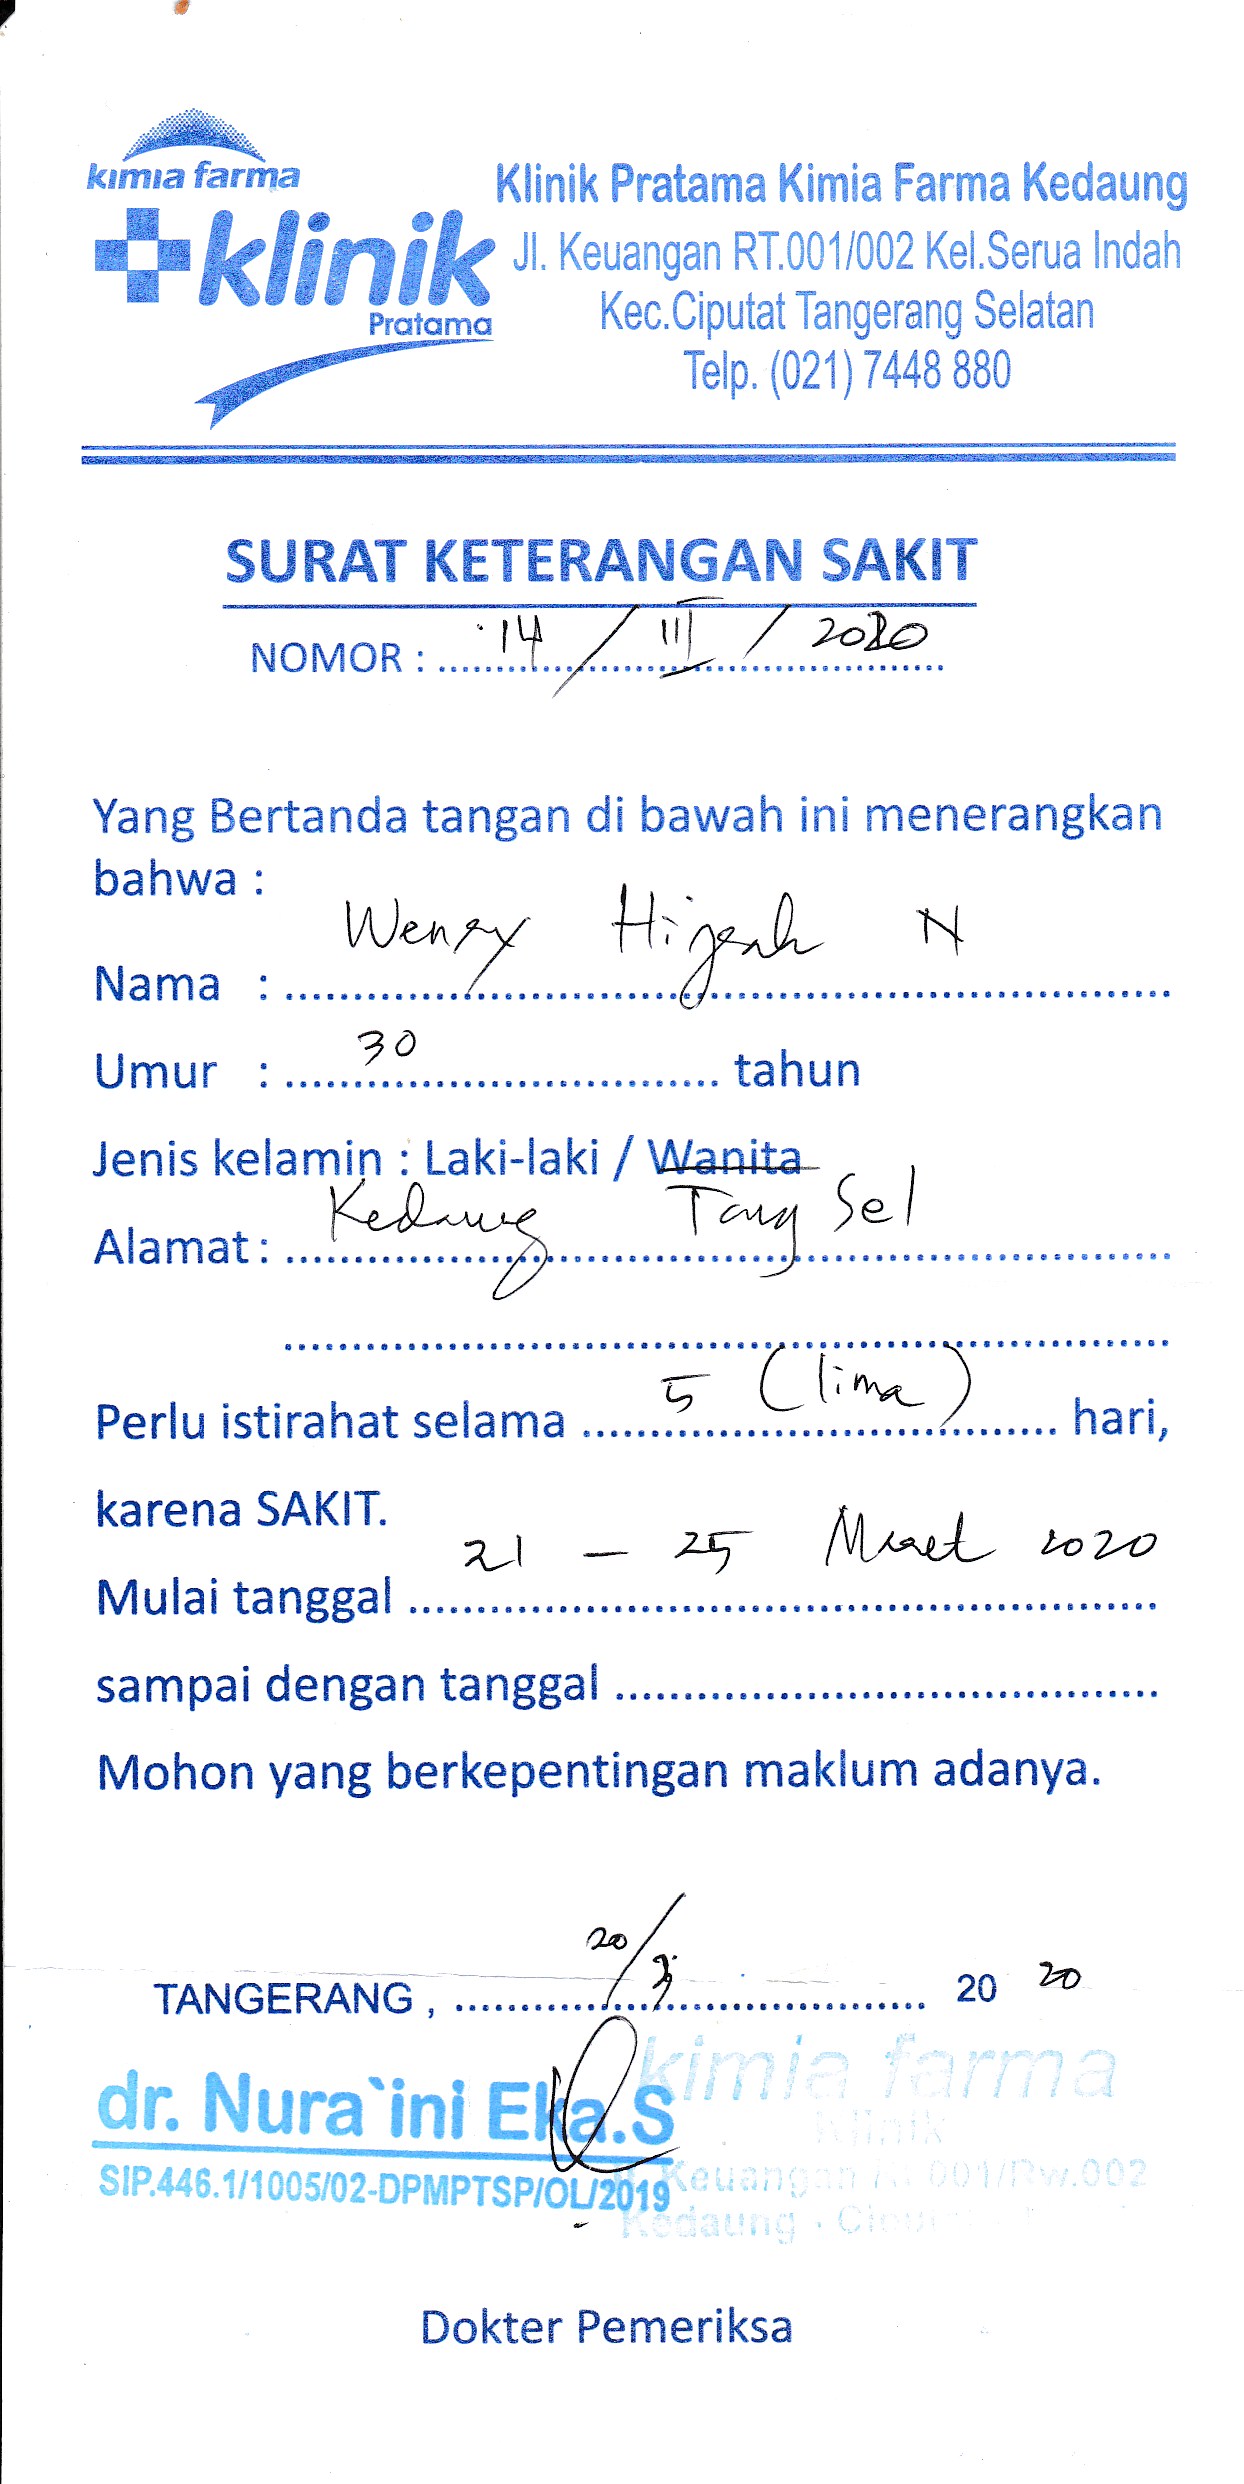 kimia farma
klinik
Pratama
Klinik Pratama Kimia Farma Kedaung
Jl. Keuangan RT.001/002 Kel.Serua Indah
Kec.Ciputat Tangerang Selatan
Telp. (021) 7448 880
SURAT KETERANGAN SAKIT
NOMOR : 14 / III / 2020
Yang Bertanda tangan di bawah ini menerangkan
bahwa :
Nama : Hijrah N
Umur : 30 tahun
Jenis kelamin : Laki-laki / Wanita
Alamat : Kedaung Tang Sel
Perlu istirahat selama 5 (lima) hari,
karena SAKIT.
Mulai tanggal 21 - 25 Maret 2020
sampai dengan tanggal
Mohon yang berkepentingan maklum adanya.
TANGERANG , 20/3 20 20
dr. Nura`ini Eka.S
SIP.446.1/1005/02-DPMPTSP/OL/2019
kimia farma
klinik
Keuangan Rt.001/Rw.002
Kedaung -
Dokter Pemeriksa